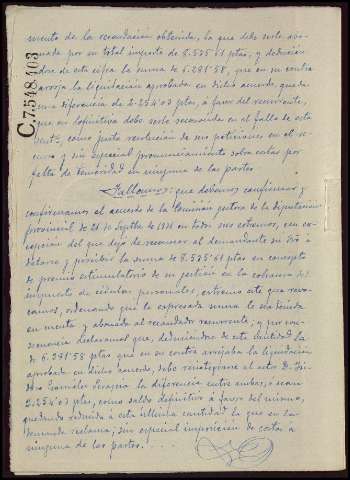 mento de la recaudación obtenida, la que debe serle abo-
nada por su total importe de 8.535'61 ptas, y deducién-
dose de esta cifra la suma de 6.281'58, que en su contra
arroja la liquidación aprobada en dicho acuerdo, queda
una diferencia de 2.254'03 ptas, a favor del recurrente,
que en definitiva debe serle reconocida en el fallo de esta
como justa resolución de sus peticiones en el re-
curso y sin especial pronunciamiento sobre costas por
falta de temeridad en ninguna de las partes.
Fallamos: que debemos confirmar y
confirmamos el acuerdo de la Comisión gestora de la Diputación
provincial de 21 de Septbre de 1931 en todos sus extremos, con ex-
cepción del que dejó de reconocer al demandante su
a percibir la suma de 8.535'61 ptas en concepto
de premio estimulatorio de su gestión en la cobranza del
impuesto de cédulas personales, extremo este que revo-
camos, ordenando que la expresada suma le sea tenida
en cuenta y abonada al recaudador recurrente; y por con-
secuencia declaramos que, deduciéndose de esta cantidad la
de 6.281'58 ptas que en su contra arrojaba la liquidación
aprobada en dicho acuerdo, debe reintegrarse al actor D.
la diferencia entre ambas, o sean
2.254'03 ptas, como saldo definitivo a favor del mismo,
quedando reducida a esta última cantidad la que en la
demanda reclama; sin especial imposición de costas a
ninguna de las partes.
C.7.548.103